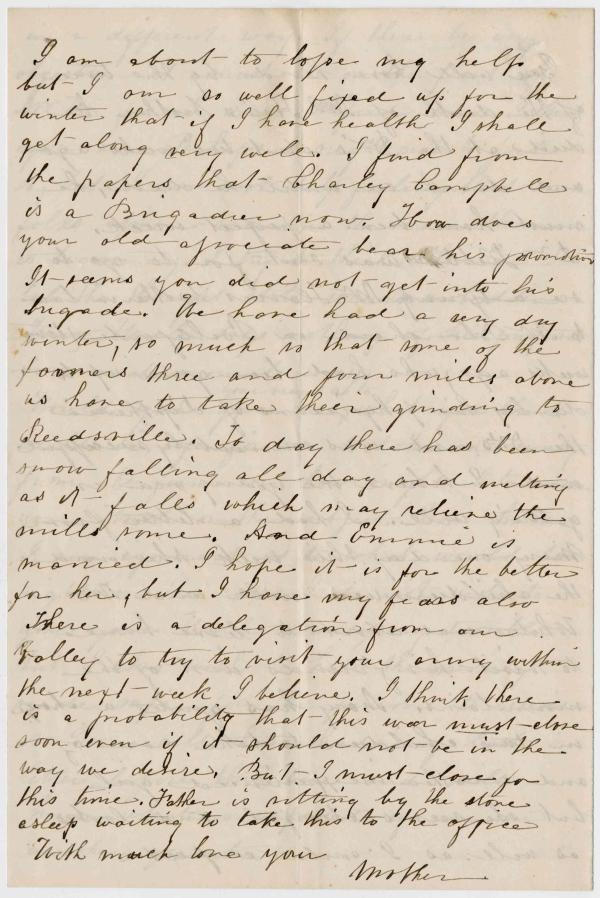 I am about to lose my help
but I am so well fixed up for the
winter that if I have health I shall
get along very well. I find from
the papers that Charley Campbell
is a Brigadier now. How does
your old associate bear his promotion
It seems you did not get into his
brigade. We have had a very dry
winter, so much so that some of the
farmers three and four miles above
us have to take their grinding to
Reedsville. To day there has been
snow falling all day and melting
as it falls which may relieve the
mills some. And Emmie is
married. I hope it is for the better
for her, but I have my fears also
There is a delegation from our
valley to try to visit your army within
the next week I believe. I think there
is a probability that this war must close
soon even if it should not be in the
way we desire. But I must close for
this time. Father is sitting by the stove
asleep waiting to take this to the office
With much love your
Mother